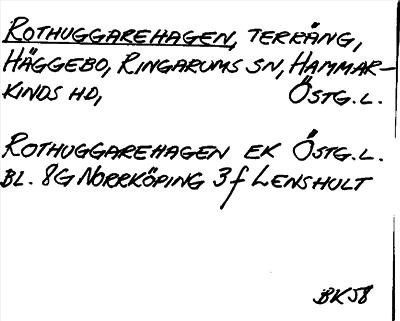 ROTHUGGAREHAGEN, TERRÄNG,
HÄGGEBO, RINGARUMS SN, HAMMAR-
KINDS HD, ÖSTG.L.
ROTHUGGAREHAGEN EK ÖSTG.L.
BL. 8G NORRKÖPING 3f LENSHULT
BK58